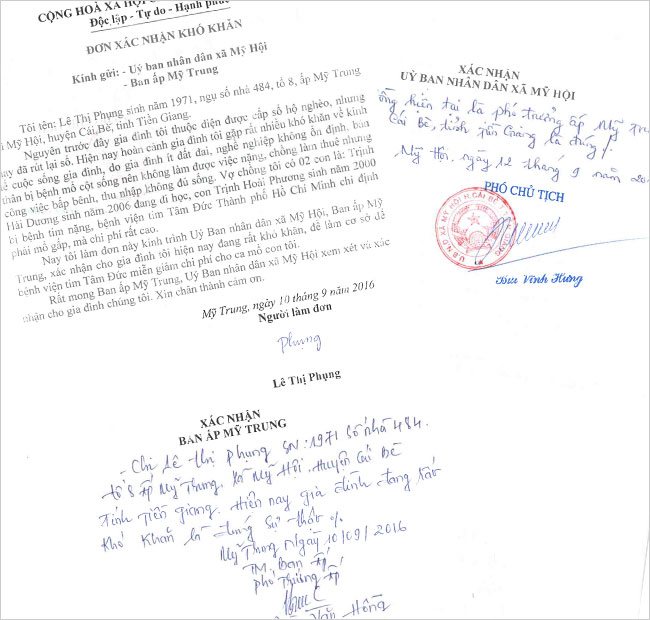 CỘNG HOÀ XÃ HỘI
Độc lập - Tự do - Hạnh phúc
ĐƠN XÁC NHẬN KHÓ KHĂN
Kính gửi: - Uỷ ban nhân dân xã Mỹ Hội
- Ban ấp Mỹ Trung
Tôi tên: Lê Thị Phụng sinh năm 1971, ngụ số nhà 484, tổ 8, ấp Mỹ Trung
xã Mỹ Hội, huyện Cái Bè, tỉnh Tiền Giang.
Nguyên trước đây gia đình tôi thuộc diện được cấp sổ hộ nghèo, nhưng
nay đã rút lại sổ. Hiện nay hoàn cảnh gia đình tôi gặp rất nhiều khó khăn về kinh
tế cuộc sống gia đình, do gia đình ít đất đai, nghề nghiệp không ổn định, bản
thân bị bệnh mổ cột sống nên không làm được việc nặng, chồng làm thuê nhưng
công việc bấp bênh, thu nhập không đủ sống. Vợ chồng tôi có 02 con là: Trịnh
Hải Dương sinh năm 2006 đang đi học, con Trịnh Hoài Phương sinh năm 2000
bị bệnh tim nặng, bệnh viện tim Tâm Đức Thành phố Hồ Chí Minh chỉ định
phải mổ gấp, mà chi phí rất cao.
Nay tôi làm đơn này kính trình Uỷ Ban nhân dân xã Mỹ Hội, Ban ấp Mỹ
Trung, xác nhận cho gia đình tôi hiện nay đang rất khó khăn, để làm cơ sở đề
bệnh viện tim Tâm Đức miễn giảm chi phí cho ca mổ con tôi.
Rất mong Ban ấp Mỹ Trung, Uỷ Ban nhân dân xã Mỹ Hội xem xét và xác
nhận cho gia đình chúng tôi. Xin chân thành cảm ơn.
Mỹ Trung, ngày 10 tháng 9 năm 2016
Người làm đơn
Phụng
Lê Thị Phụng
XÁC NHẬN
BAN ẤP MỸ TRUNG
- Chị Lê Thị Phụng SN: 1971 Số nhà 484.
tổ 8 ấp Mỹ Trung, xã Mỹ Hội, Huyện Cái Bè
Tỉnh Tiền Giang. Hiện nay gia đình đang rất
khó khăn là đúng sự thật %
Mỹ Trung Ngày 10/09/2016
TM. Ban ấp
phó Trưởng ấp
Văn Hồng
XÁC NHẬN
UỶ BAN NHÂN DÂN XÃ MỸ HỘI
ông hiện tại là phó trưởng ấp Mỹ
Cái Bè, tỉnh Tiền Giang là đúng /.
Mỹ Hội, ngày 12 tháng 9 năm
PHÓ CHỦ TỊCH
U.B.N.D XÃ MỸ HỘI H.CÁI BÈ
Bùi Vĩnh Hưng